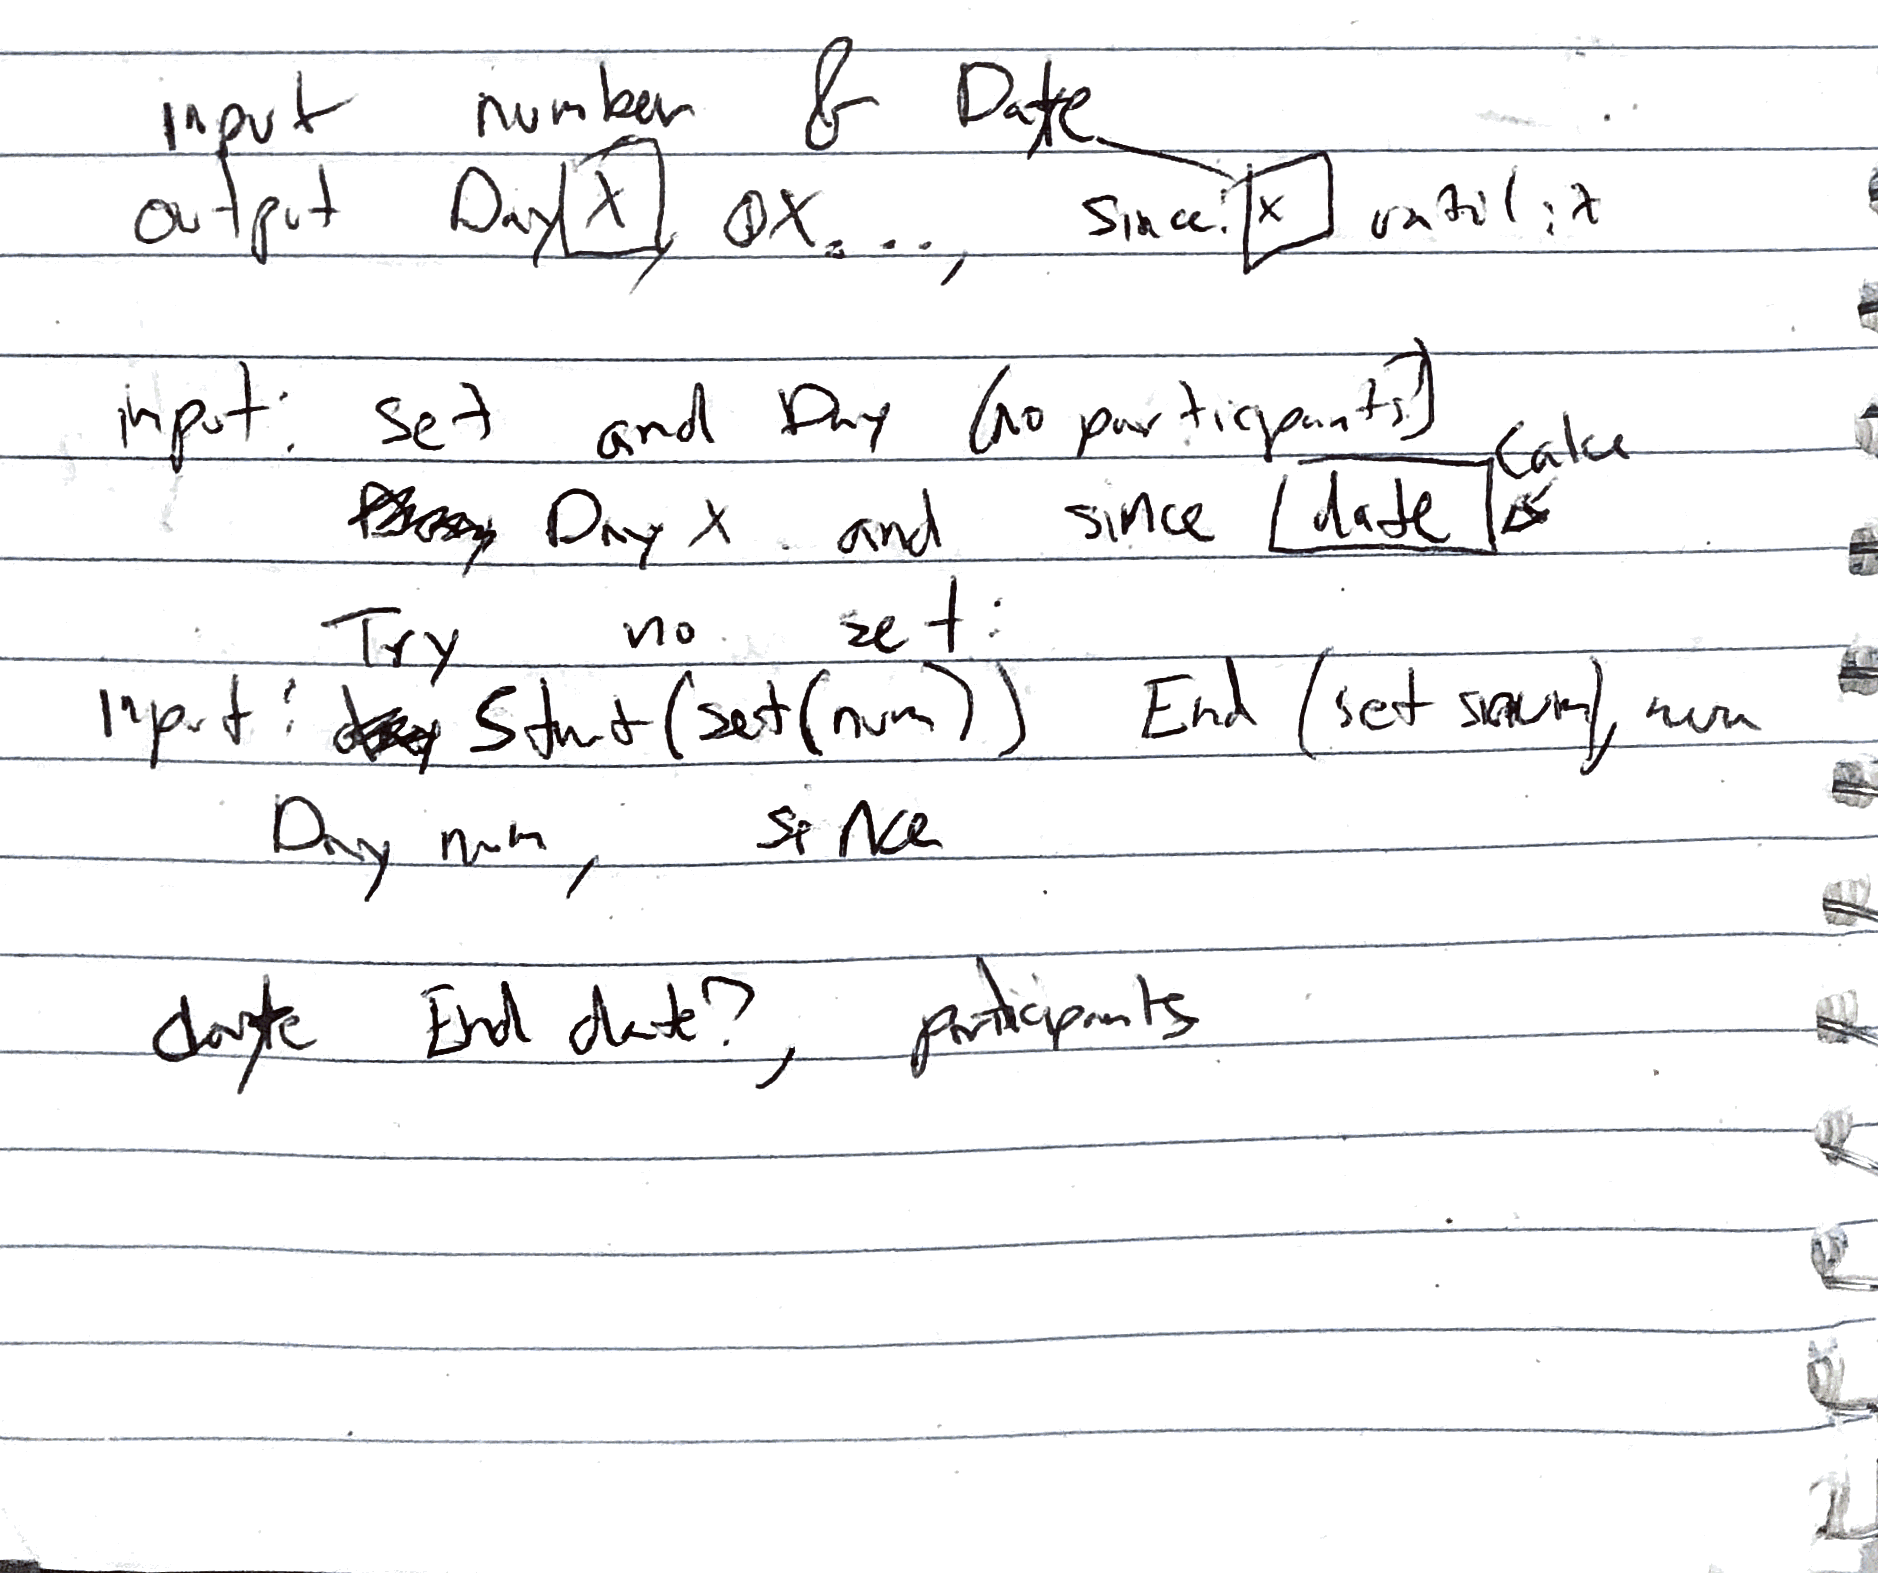 input number & Date
output Day X, @X...., since: X until: x
input: set and Day (no participants)
Day X and since date calc
Try no set:
Input: Start (set(num)) End (set num), num
Day num, since
date End date?, participants